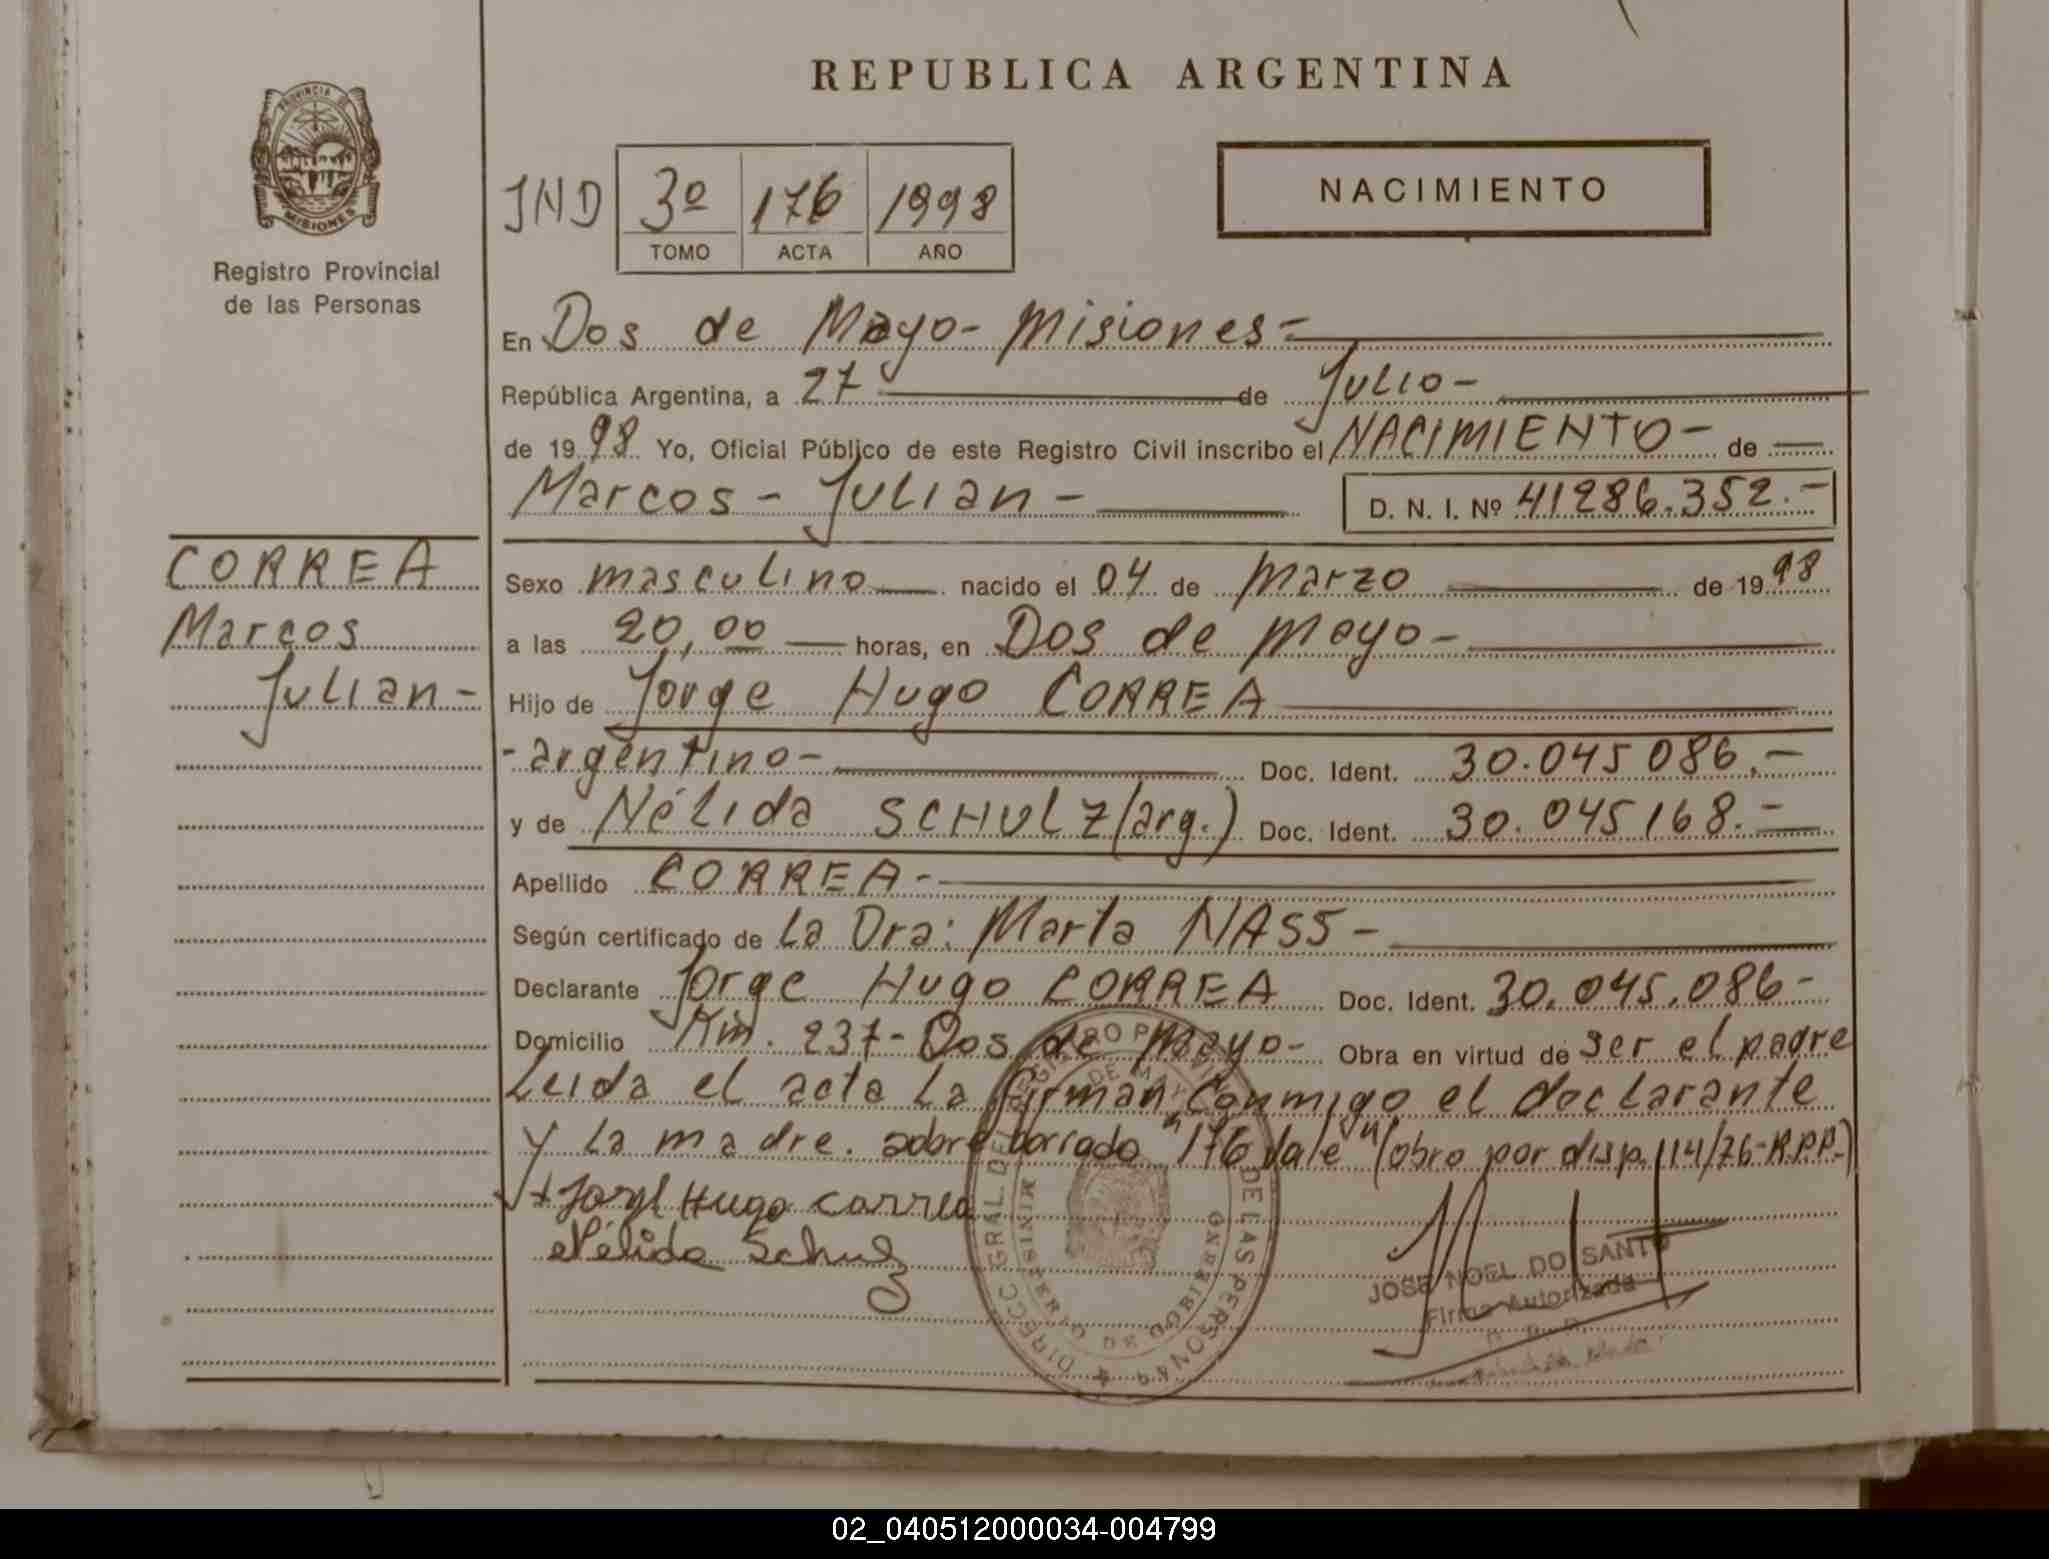 REPUBLICA ARGENTINA
PROVINCIA DE
MISIONES
Registro Provincial
de las Personas
IND
3º 176 1998
TOMO ACTA AÑO
NACIMIENTO
En Dos de Mayo - Misiones =
República Argentina, a 27 de Julio -
de 1998 Yo, Oficial Público de este Registro Civil inscribo el NACIMIENTO - de
Marcos - Julian - D. N. I. Nº 41286.352. -
CORREA
Marcos
Julian -
Sexo masculino nacido el 04 de Marzo de 1998
a las 20,00 horas, en Dos de Mayo -
Hijo de Jorge Hugo CORREA
- argentino - Doc. Ident. 30.045 086. -
y de Nélida SCHULZ (arg.) Doc. Ident. 30.045 168. -
Apellido CORREA -
Según certificado de La Dra: Marta NASS -
Declarante Jorge Hugo CORREA Doc. Ident. 30.045.086 -
Domicilio Km. 237 - Dos de Mayo - Obra en virtud de ser el padre
Leida el acta la firman conmigo el declarante
y la madre. sobre borrado "176 Vale" (obro por disp. 114/76-R.P.P.)
Jorge Hugo Correa
Nélida Schulz
DIRECC. GRAL. DEL REGISTRO PROVINCIAL DE LAS PERSONAS
MINISTERIO DE GOBIERNO
JOSE NOEL DO SANTO
Firma Autorizada
02_040512000034-004799